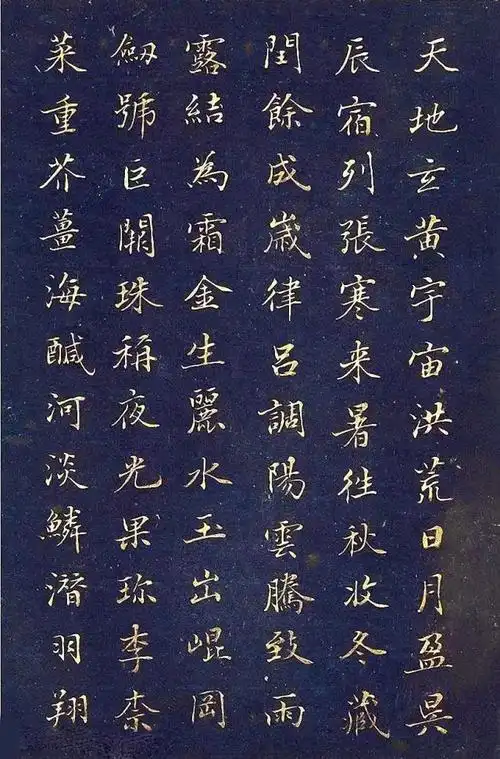 天地玄黃宇宙洪荒日月盈昃
辰宿列張寒来暑徃秋收冬藏
閏餘成嵗律呂調陽雲騰致雨
露結為霜金生麗水玉出崐岡
劔號巨闕珠稱夜光果珎李柰
菜重芥薑海鹹河淡鱗潛羽翔